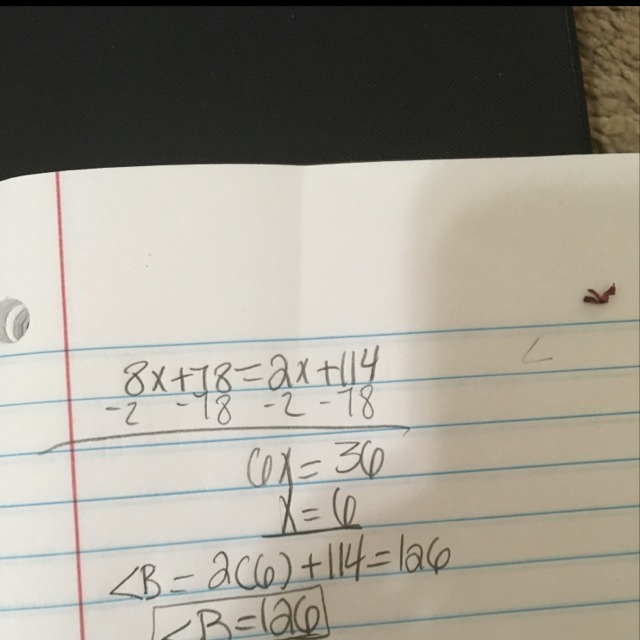 8x+78=2x+114
-2 -78 -2 -78
6x=36
x=6
<B = 2(6)+114=126
<B=126